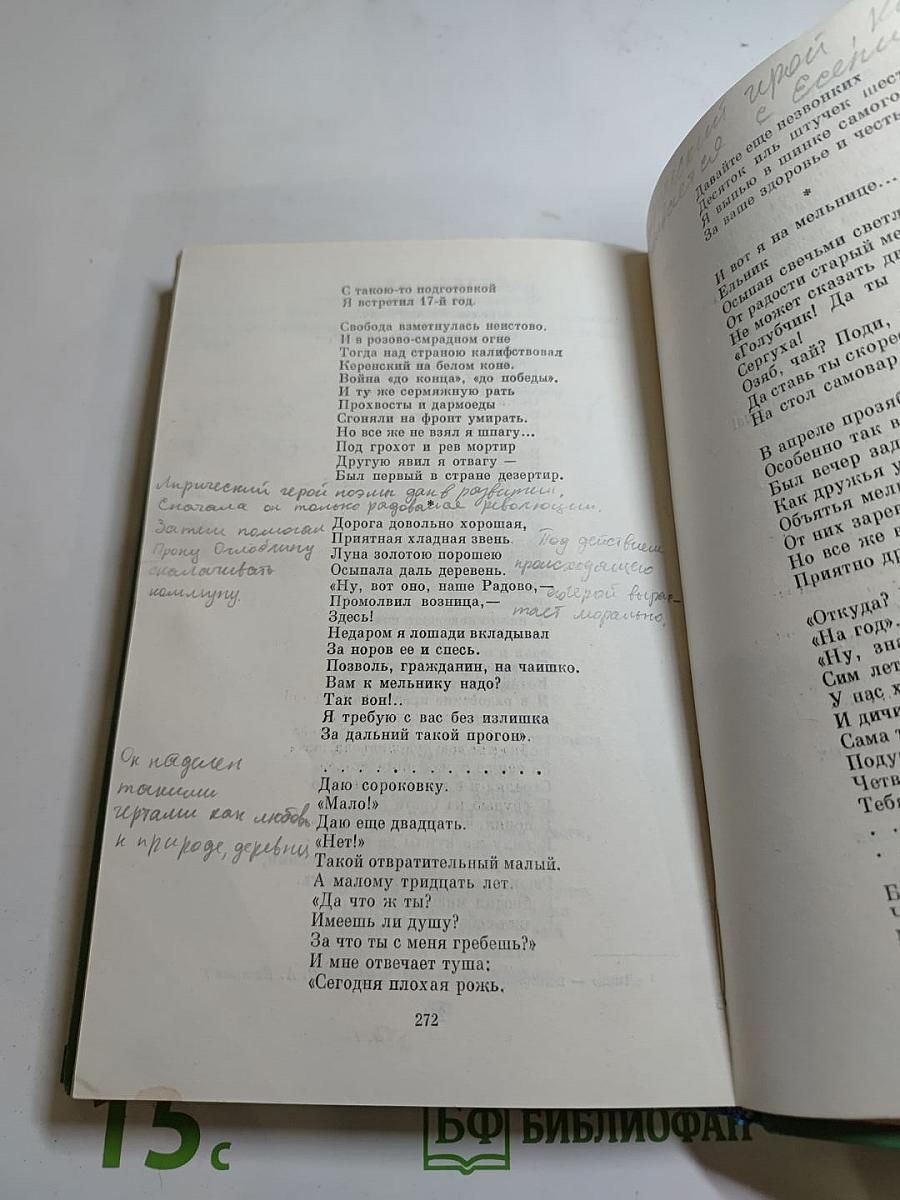 С такою-то подготовкой
Я встретил 17-й год.
Свобода взметнулась неистово.
И в розово-смрадном огне
Тогда над страною калифствовал
Керенский на белом коне.
Война «до конца», «до победы».
И ту же сермяжную рать
Прохвосты и дармоеды
Сгоняли на фронт умирать.
Но все же не взял я шпагу...
Под грохот и рев мортир
Другую явил я отвагу —
Был первый в стране дезертир.
Лирический герой поэмы дан в развитии.
Сначала он только революции.
*
Затем помогал
Прону Оглоблину
сколачивать
коммуну.
Дорога довольно хорошая,
Приятная хладная звень.
Луна золотою порошею
Осыпала даль деревень.
«Ну, вот оно, наше Радово,—
Промолвил возница,—
Здесь!
Недаром я лошади вкладывал
За норов ее и спесь.
Позволь, гражданин, на чаишко.
Вам к мельнику надо?
Так вон!..
Я требую с вас без излишка
За дальний такой прогон».
Под действием
происходящего
герой выраста-
тает морально.
. . . . . . . . . . . . .
Он наделен
такими
чертами как любовь
к природе, деревни
Даю сороковку.
«Мало!»
Даю еще двадцать.
«Нет!»
Такой отвратительный малый.
А малому тридцать лет.
«Да что ж ты?
Имеешь ли душу?
За что ты с меня гребешь?»
И мне отвечает туша:
«Сегодня плохая рожь.
272
герой
с
Давайте еще незвонких
Десяток иль штучек шест
Я выпью в шинке самого
За ваше здоровье и честь
*
И вот я на мельнице...
Ельник
Осыпан свечьми светл
От радости старый ме
Не может сказать дв
«Голубчик! Да ты
Сергуха!
Озяб, чай? Поди,
Да ставь ты скорее
На стол самовар
В апреле прозяб
Особенно так в
Был вечер зад
Как дружья у
Объятья мель
От них зарев
Но все же в
Приятно др
«Откуда?
«На год».
«Ну, зна
Сим лет
У нас х
И дичи
Сама т
Поду
Четв
Тебя
15 с
БФ БИБЛИОФАН